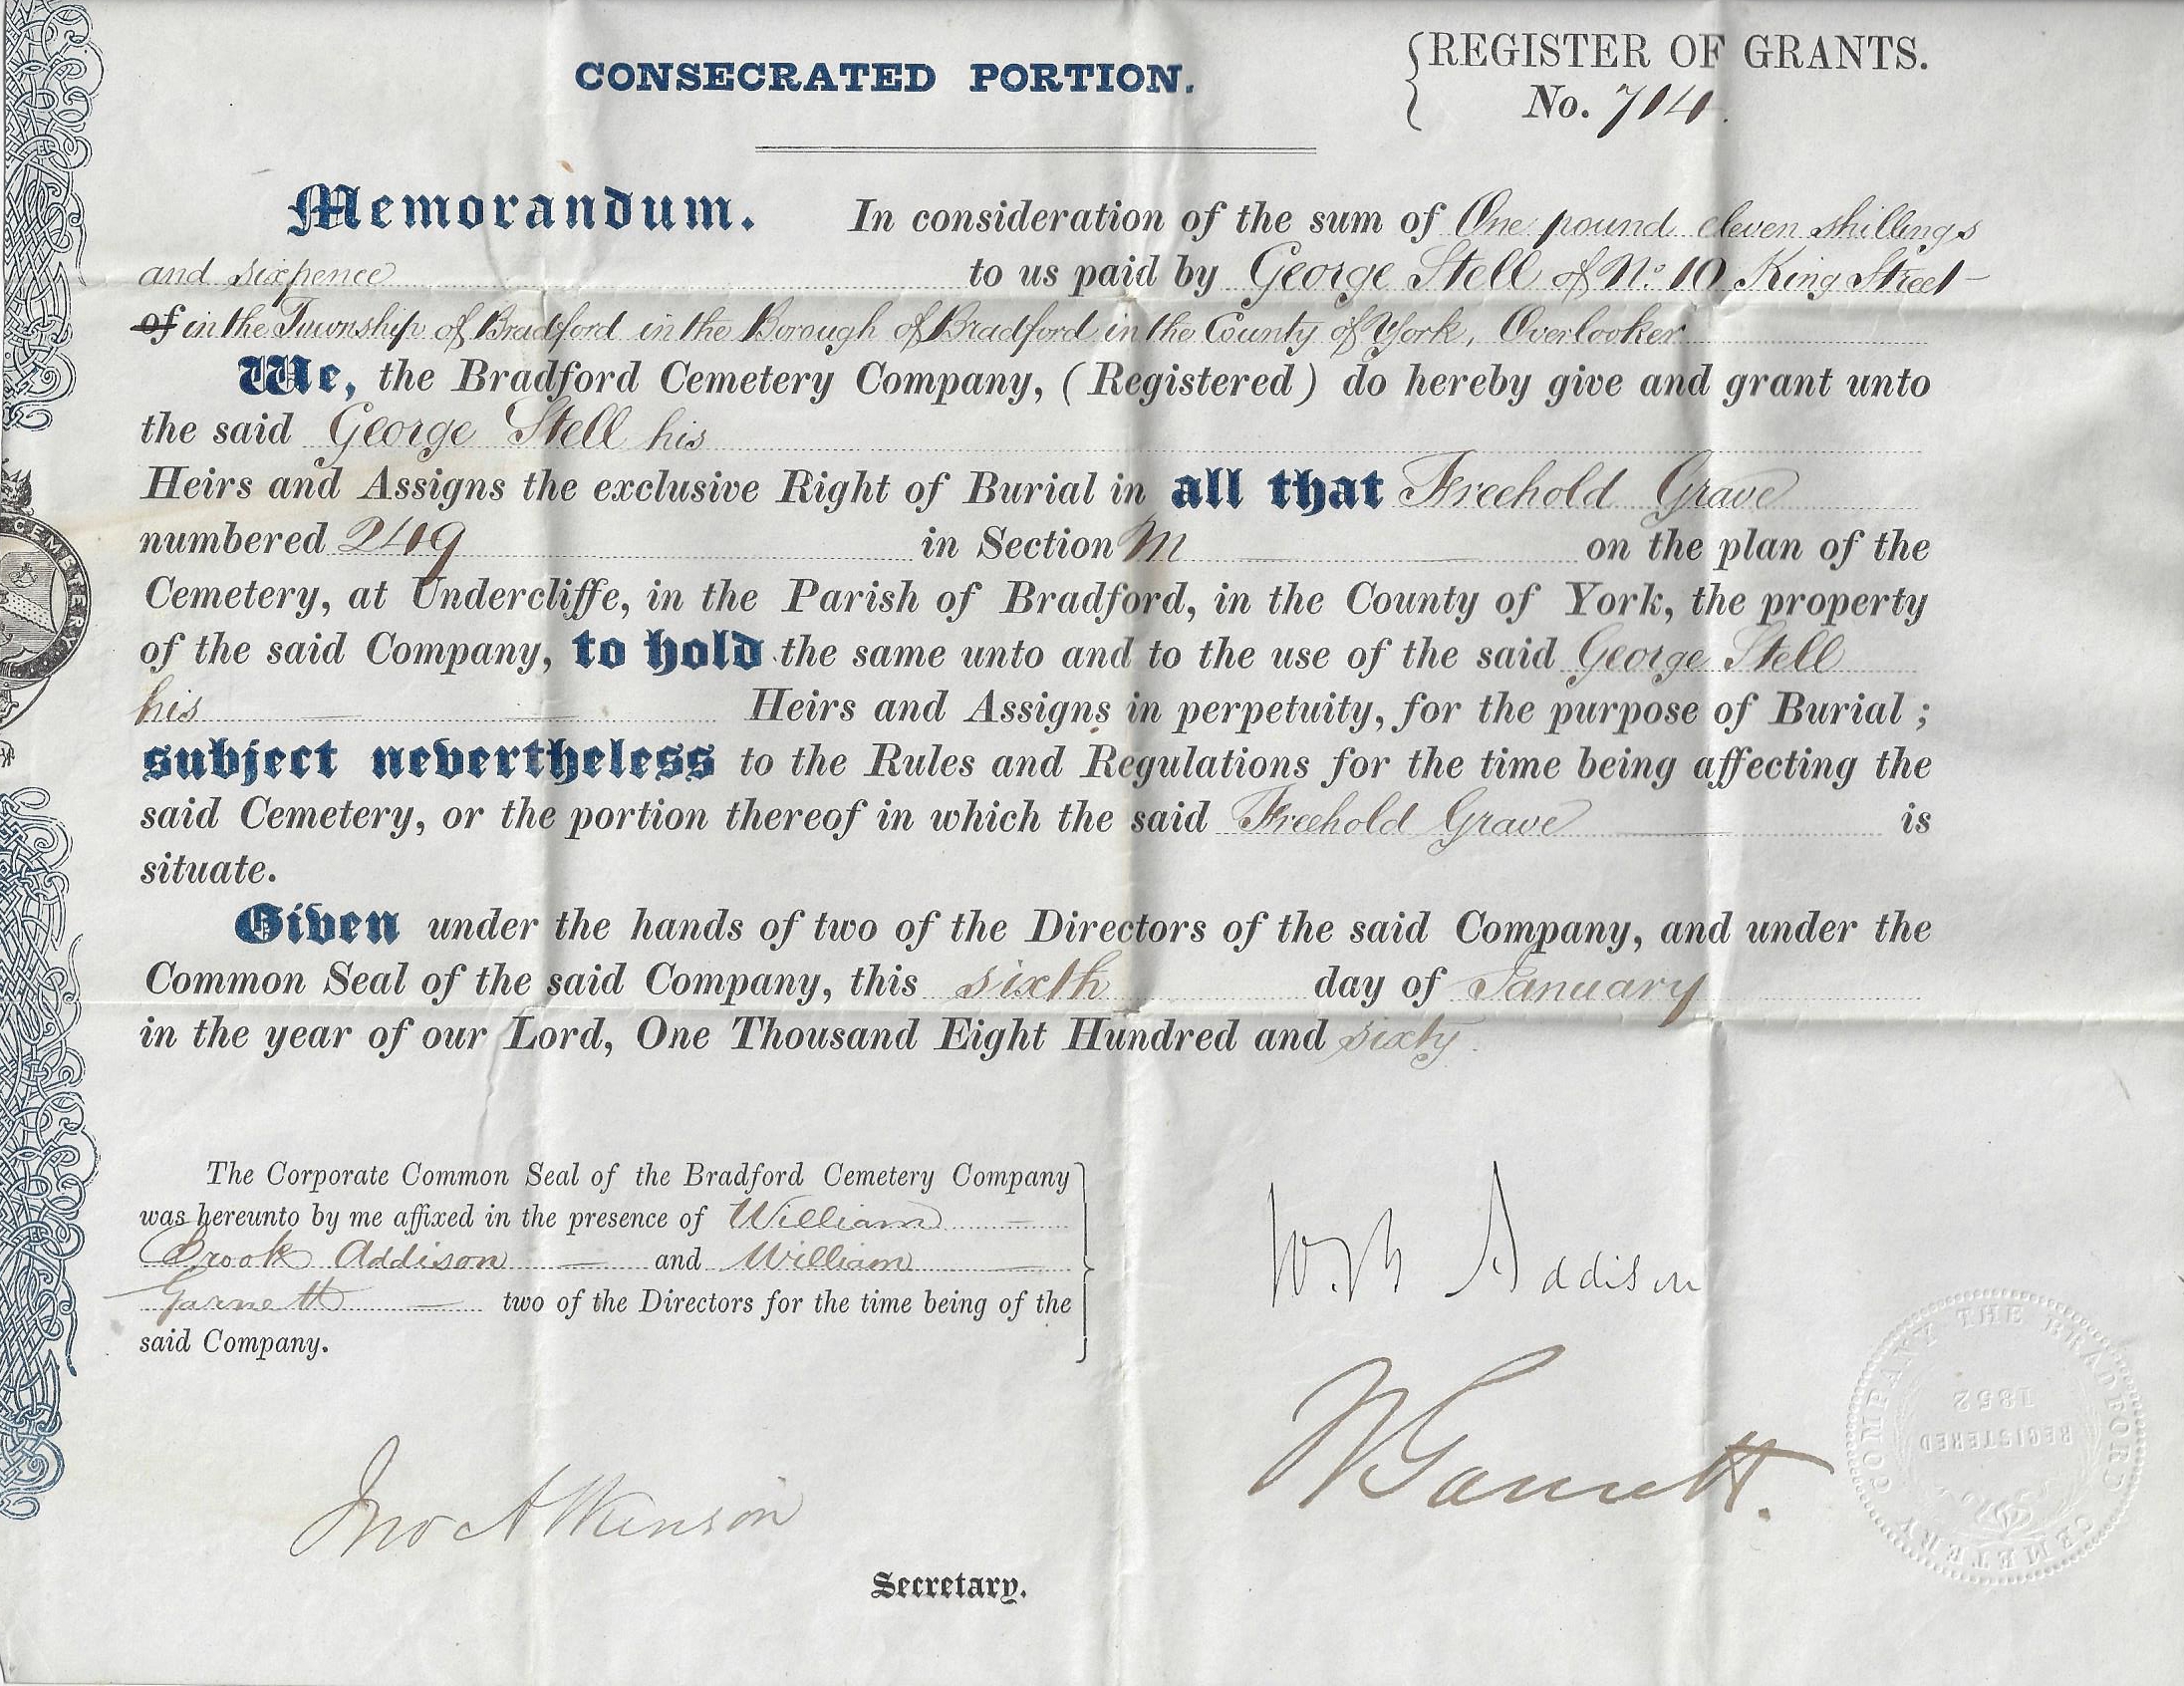 CONSECRATED PORTION.
REGISTER OF GRANTS.
No. 714.
Memorandum. In consideration of the sum of One pound eleven shillings
and sixpence to us paid by George Stell of No. 10 King Street
of in the Township of Bradford in the Borough of Bradford in the County of York, Overlooker
We, the Bradford Cemetery Company, (Registered) do hereby give and grant unto
the said George Stell his
Heirs and Assigns the exclusive Right of Burial in all that Freehold Grave
numbered 249 in Section M on the plan of the
Cemetery, at Undercliffe, in the Parish of Bradford, in the County of York, the property
of the said Company, to hold the same unto and to the use of the said George Stell
his Heirs and Assigns in perpetuity, for the purpose of Burial;
subject nevertheless to the Rules and Regulations for the time being affecting the
said Cemetery, or the portion thereof in which the said Freehold Grave is
situate.
Given under the hands of two of the Directors of the said Company, and under the
Common Seal of the said Company, this sixth day of January
in the year of our Lord, One Thousand Eight Hundred and sixty.
The Corporate Common Seal of the Bradford Cemetery Company
was hereunto by me affixed in the presence of William
Brook Addison and William
Garnett two of the Directors for the time being of the
said Company.
W. B Addison
W Garnett.
Jno Atkinson
Secretary.
THE BRADFORD CEMETERY COMPANY
REGISTERED
1852
CEMETERY